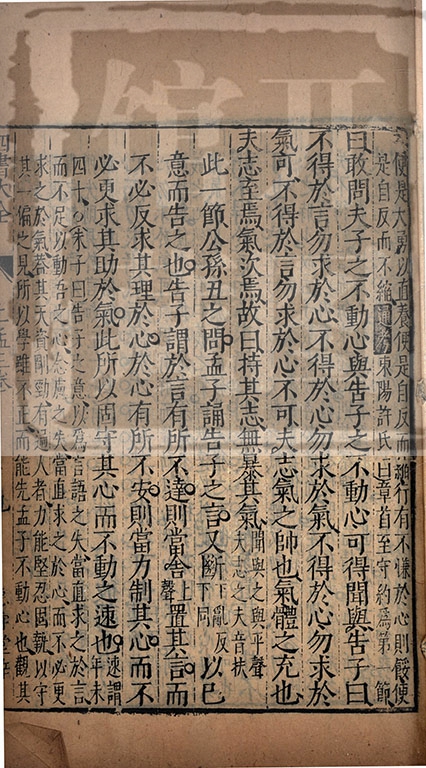 便是大勇以直養便是自反而縮行有不慊於心則餒便
是自反而不縮通考東陽許氏曰章首至守約爲第一節
曰敢問夫子之不動心與告子之不動心可得聞與告子曰
不得於言勿求於心不得於心勿求於氣不得於心勿求於
氣可不得於言勿求於心不可夫志氣之帥也氣體之充也
夫志至焉氣次焉故曰持其志無暴其氣聞與之與平聲
夫志之夫音扶
此一節公孫丑之問孟子誦告子之言又斷丁亂反
下同以己
意而告之也告子謂於言有所不達則當舍上聲置其言而
不必反求其理於心於心有所不安則當力制其心而不
必更求其助於氣此所以固守其心而不動之速也速謂
年未
四十○朱子曰告子之意以爲言語之失當直求之於言
而不足以動吾之心念慮之失當直求之於心而不必更
求之於氣蓋其天資剛勁有過人者力能堅忍固執以守
其一偏之見所以學雖不正而能先孟子不動心也觀其
四書大全
孟三卷
九